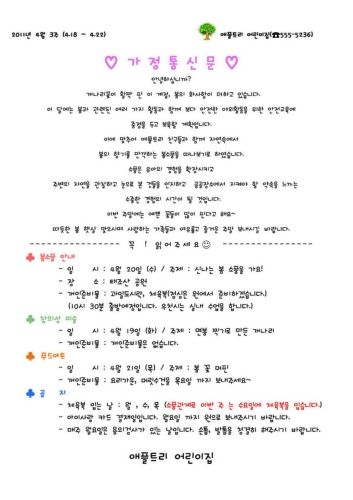 2011년 4월 3주 (4.18 ~ 4.22)
애플트리 어린이집(☎555-5236)
♡ 가정통신문 ♡
안녕하십니까?
개나리꽃이 활짝 핀 이 계절, 봄의 화사함이 더하고 있습니다.
이 달에는 봄과 관련된 여러 가지 활동과 함께 보다 안전한 야외활동을 위한 안전교육에
중점을 두고 보육할 계획입니다.
이에 맞추어 애플트리 친구들과 함께 자연속에서
봄의 향기를 만끽하는 봄소풍을 떠나보기로 하였습니다.
소풍은 유아의 경험을 확장시키고
주변의 자연을 관찰하고 눈으로 본 것들을 인지하고 공공장소에서 지켜야 할 약속을 느끼는
소중한 경험의 시간이 될 것입니다.
이번 주말에는 예쁜 꽃들이 많이 핀다고 해요~
따뜻한 봄 햇살 맞으시며 사랑하는 가족들과 여유롭고 즐거운 주말 보내시길 바랍니다.
꼭 ! 읽어주세요☺
♣ 봄소풍 안내
- 일 시 : 4월 20일 (수) / 주제 : 신나는 봄 소풍을 가요!
- 장 소 : 태조산 공원
- 개인준비물 : 과일도시락, 체육복(점심은 원에서 준비하겠습니다.)
(10시 30분 출발예정입니다. 우천시는 실내 수업을 합니다.)
♣ 창의성 미술
- 일 시 : 4월 19일 (화) / 주제 : 면봉 찍기로 만든 개나리
- 개인준비물 : 개인준비물은 없습니다.
♣ 푸드아트
- 일 시 : 4월 21일 (목) / 주제 : 봄 꽃 머핀
- 개인준비물 : 요리가운, 머릿수건을 목요일 까지 보내주세요~
♣ 공 지
- 체육복 입는 날 : 월 , 수, 목 (소풍관계로 이번 주 는 수요일에 체육복을 입습니다.)
- 아이사랑 카드 결제일입니다. 월요일 까지 원으로 보내주시기 바랍니다.
- 매주 월요일은 용의검사가 있는 날입니다. 손톱, 발톱을 청결히 해주시기 바랍니다.
애플트리 어린이집